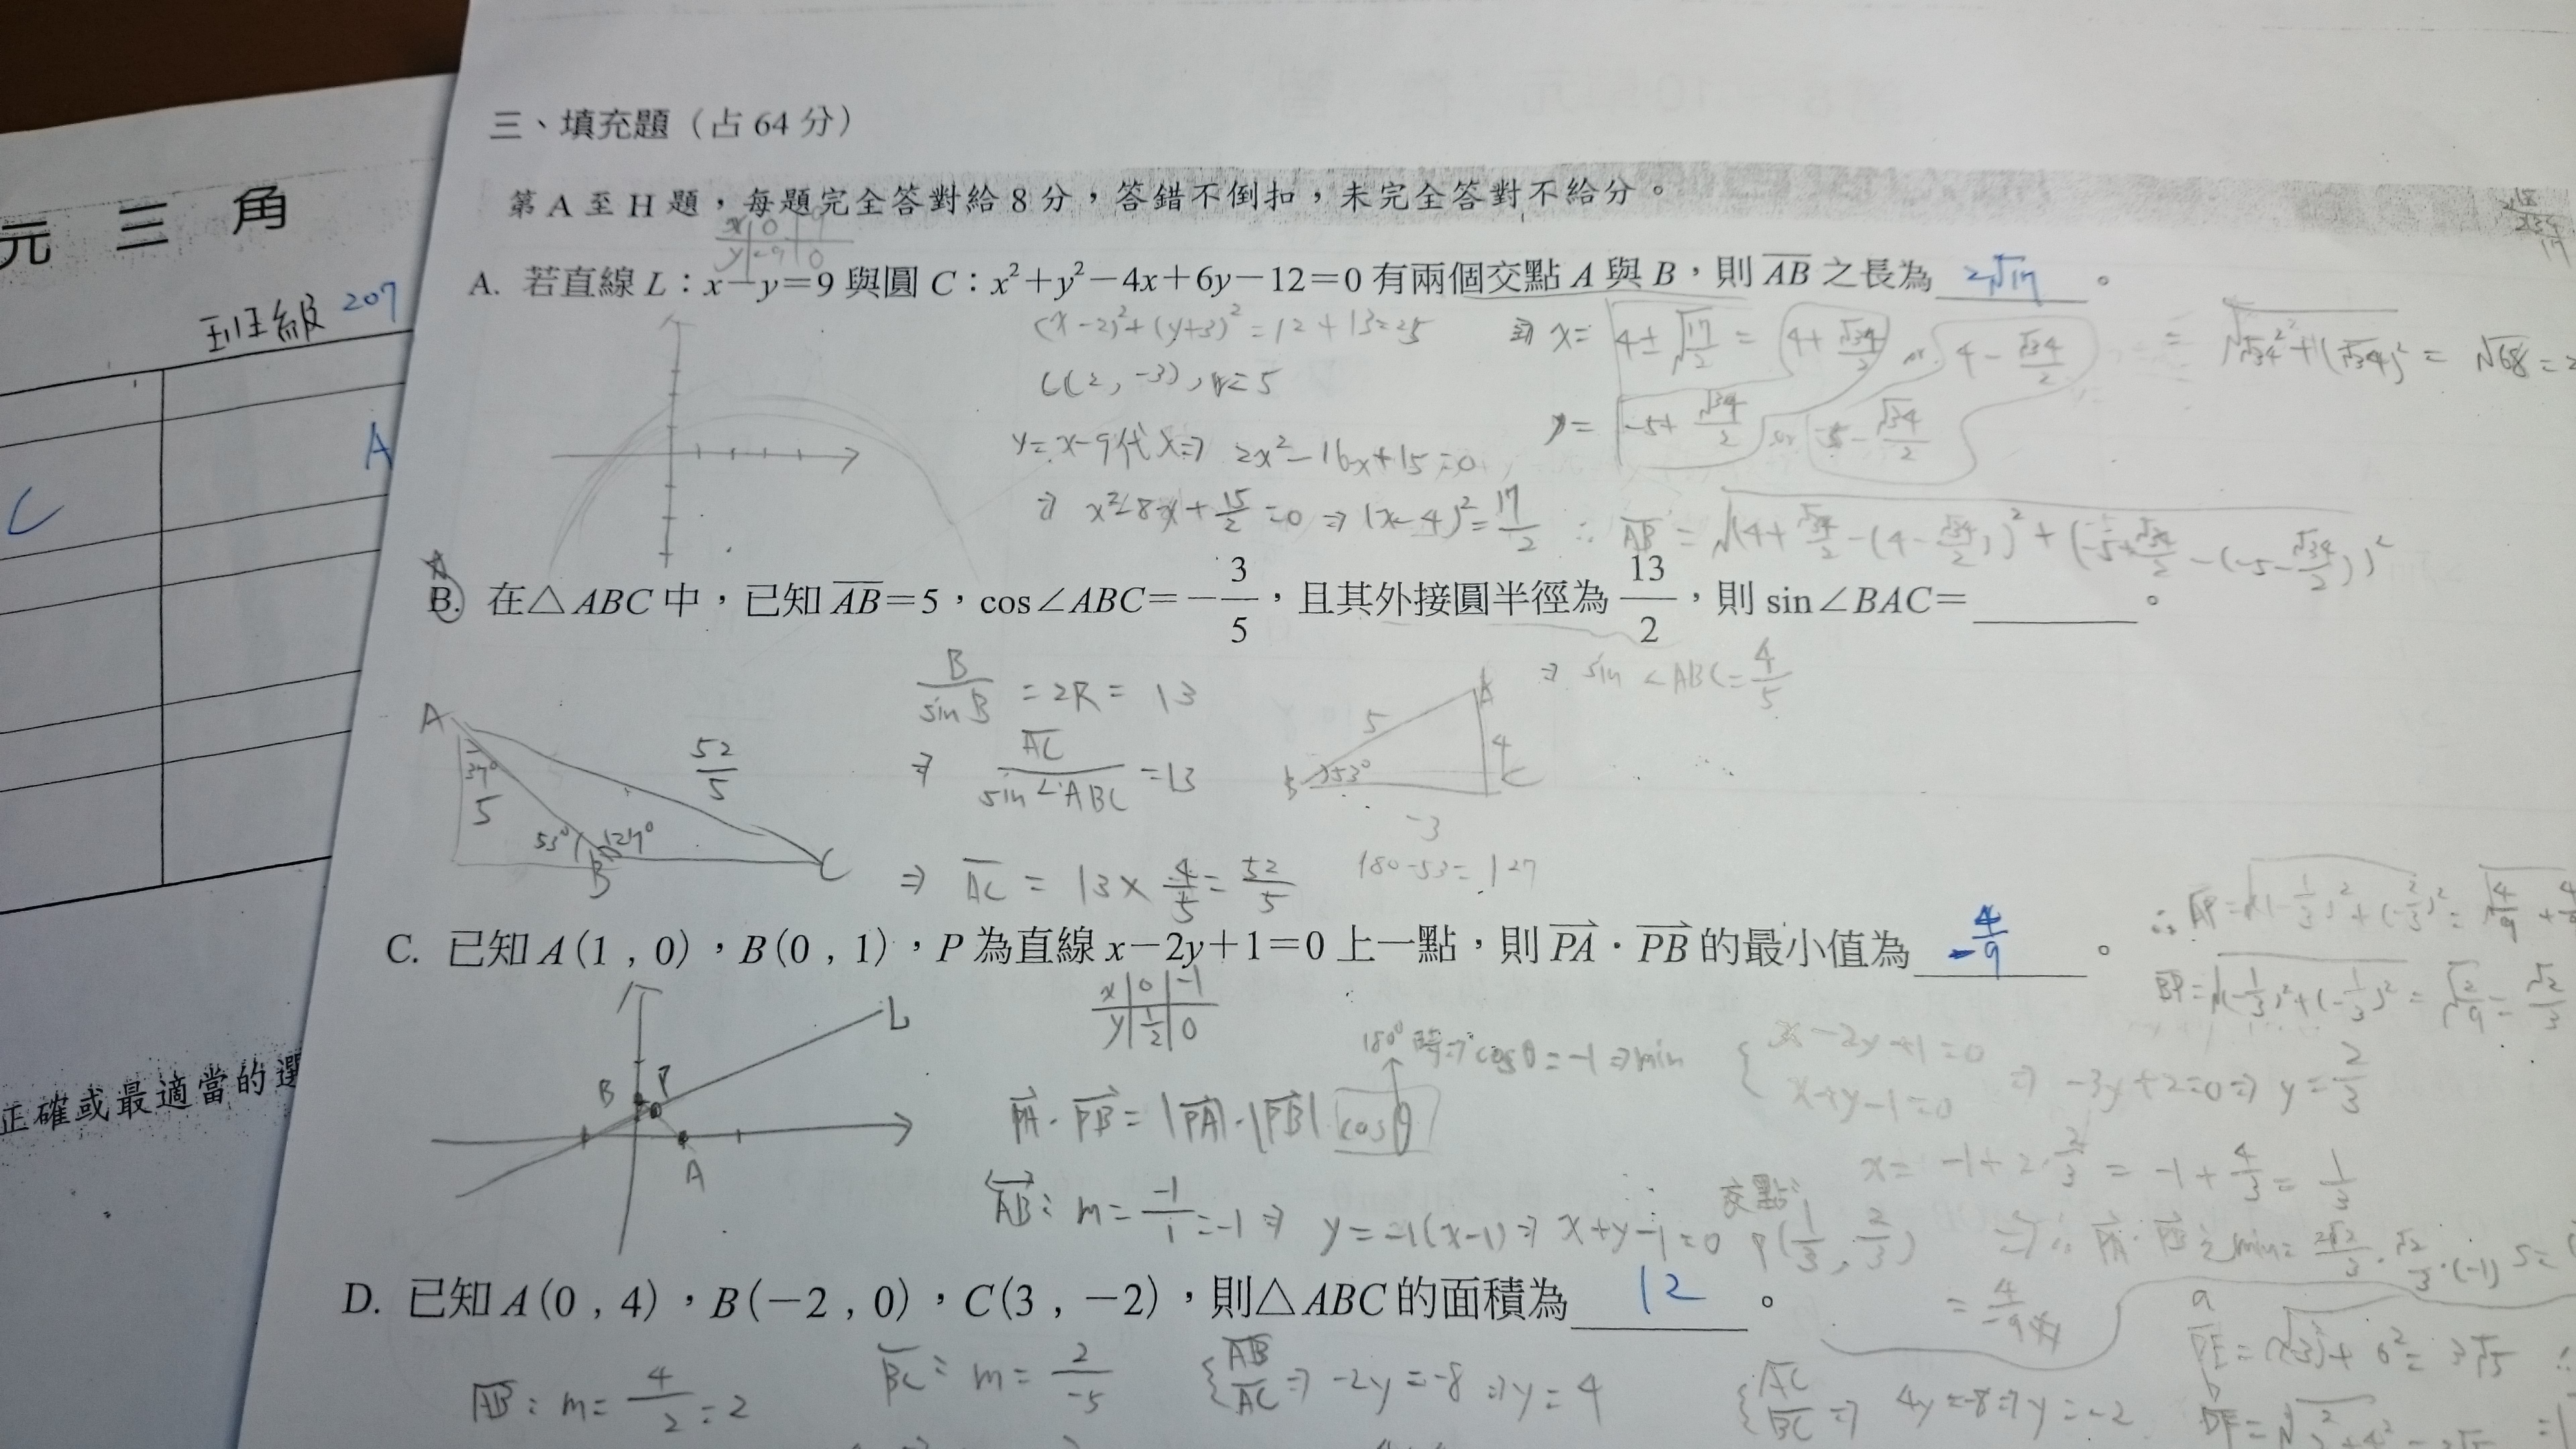 三、填充題（占 64 分）
第 A 至 H 題，每題完全答對給 8 分，答錯不倒扣，未完全答對不給分。
元 三 角
班級 207
A
C
正確或最適當的選
x 0 9
y -9 0
A. 若直線 L：x－y＝9 與圓 C：x²＋y²－4x＋6y－12＝0 有兩個交點 A 與 B，則 AB 之長為 2√17 。
(x-2)²+(y+3)²=12+13=25
C(2, -3), r=5
y=x-9代入⇒ 2x²-16x+15=0
⇒ x²-8x+15/2=0 ⇒ (x-4)²=17/2
x= 4±√17/2 = 4+√34/2 or 4-√34/2
y= -5+√34/2 or -5-√34/2
∴ AB = √(4+√34/2-(4-√34/2))²+(-5+√34/2-(-5-√34/2))²
= √√34²+(√34)² = √68 = 2
B. 在△ABC 中，已知 AB＝5，cos∠ABC＝－3/5，且其外接圓半徑為 13/2，則 sin∠BAC＝ 。
B/sin B = 2R = 13
⇒ AC/sin∠ABC = 13
⇒ AC = 13 × 4/5 = 52/5
⇒ sin∠ABC = 4/5
A 37° 5 53° 127° B C 52/5
5 A 4 B 53° C -3
180-53=127
C. 已知 A(1 , 0)，B(0 , 1)，P 為直線 x－2y＋1＝0 上一點，則 PA · PB 的最小值為 -4/9 。
x 0 -1
y 1/2 0
L
B P
A
180° 時⇒ cosθ=-1 ⇒ min
PA · PB = |PA|·|PB| cosθ
AB: m = -1/1 = -1 ⇒ y=-1(x-1) ⇒ x+y-1=0
交點: P(1/3, 2/3)
x-2y+1=0
x+y-1=0
⇒ -3y+2=0 ⇒ y=2/3
x = -1+2·2/3 = -1+4/3 = 1/3
BP = √(-1/3)²+(-1/3)² = √2/9 = √2/3
⇒ ∴ PA · PB 之 min = 2√2/3 · √2/3 · (-1)
= -4/9
D. 已知 A(0 , 4)，B(－2 , 0)，C(3 , －2)，則△ABC 的面積為 12 。
AB: m = 4/2 = 2
BC: m = 2/-5
AB
AC ⇒ -2y=-8 ⇒ y=4
AC
BC ⇒ 4y=-8 ⇒ y=-2